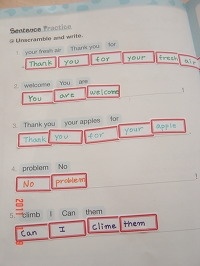 Sentence Practice
Unscramble and write.
1. your fresh air Thank you for
Thank you for your fresh air
2. welcome You are
You are welcome
3. Thank you your apples for
Thank you for your apple
4. problem No
No problem
5. climb I Can them
Can I clime them